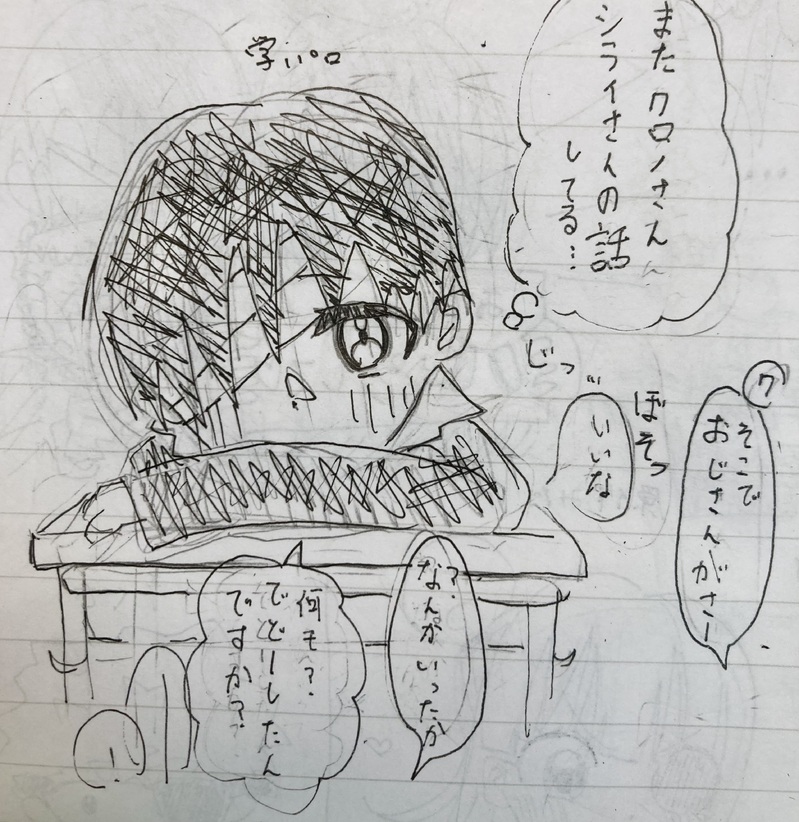 学パロ
また クロノさん
シライさんの話
してる…
じっ
ク
そこで
おじさんがさー
ぼそっ
いいな
?
なんかいったか
何モ?
でどりしたん
ですか?
!